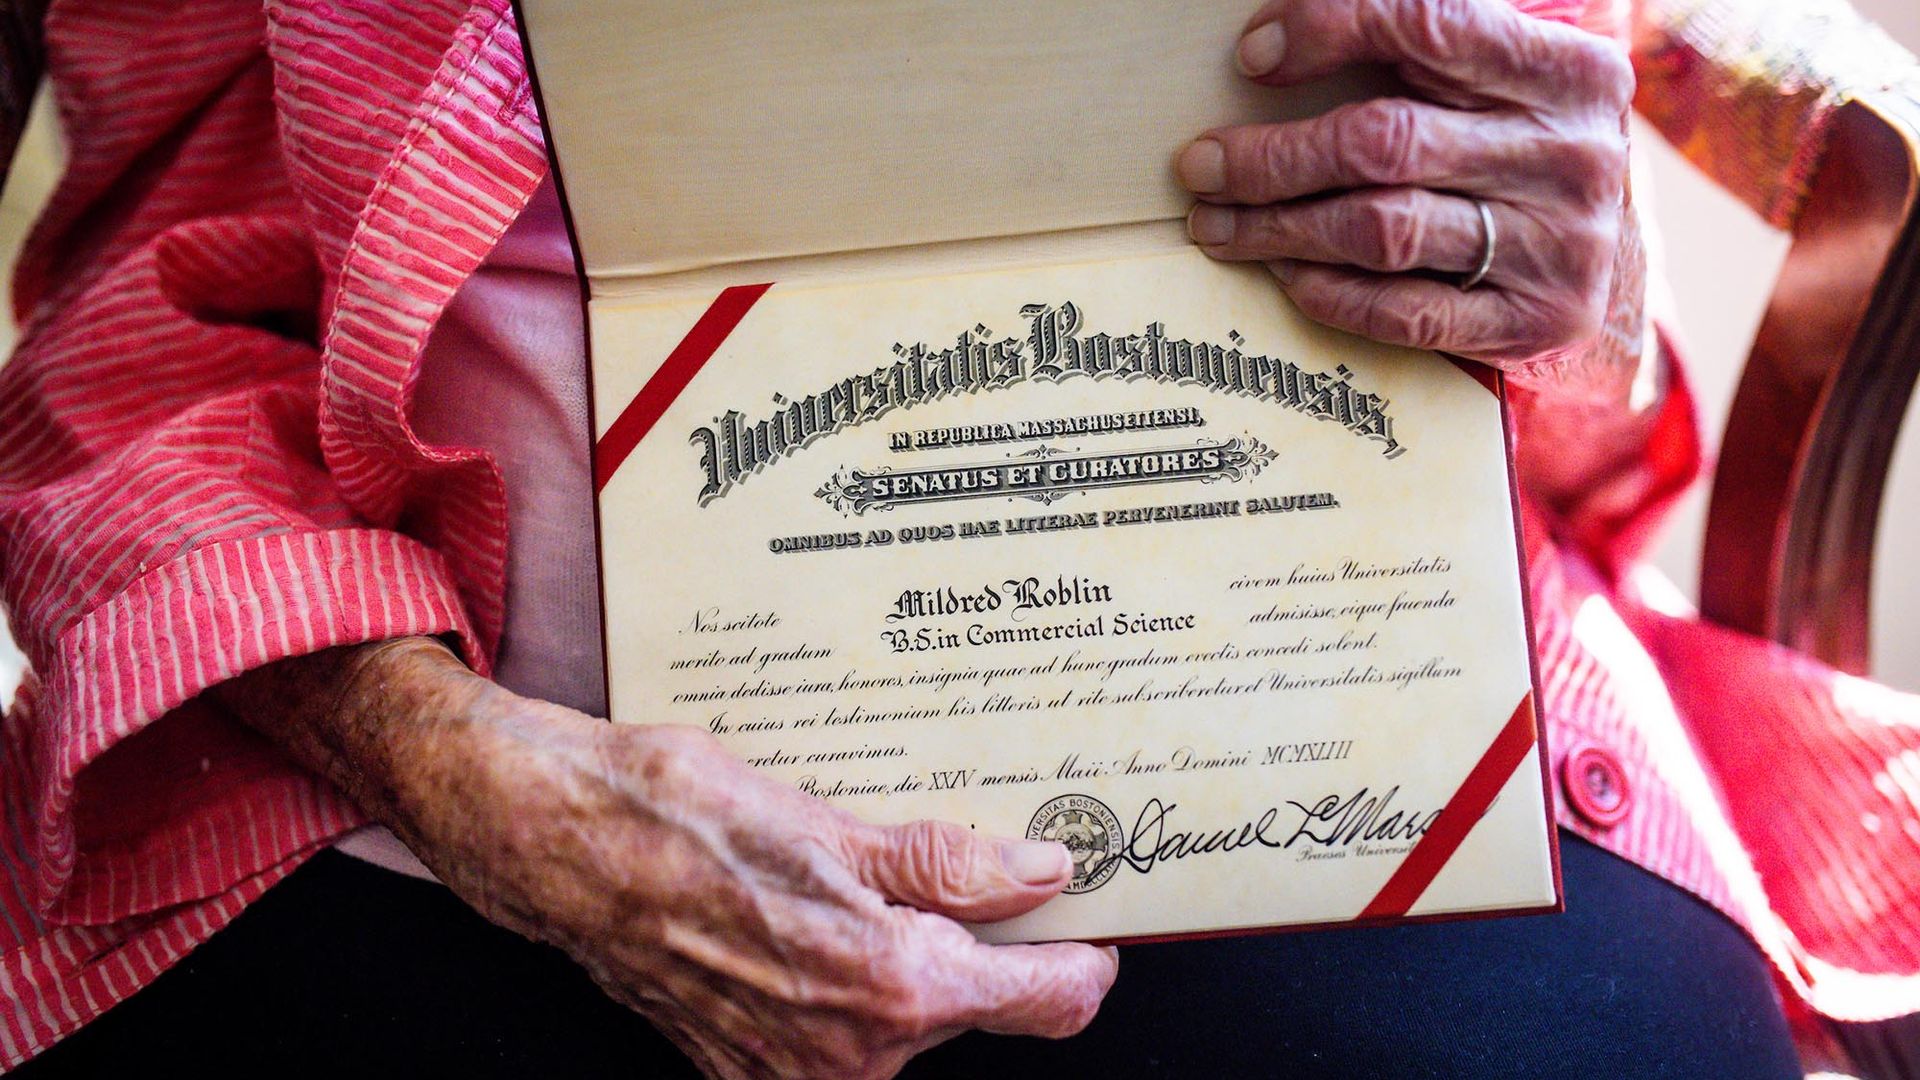 Universitatis Bostoniensis,
IN REPUBLICA MASSACHUSETTENSI,
SENATUS ET CURATORES
OMNIBUS AD QUOS HAE LITTERAE PERVENERINT SALUTEM.
Nos scitote Mildred Roblin civem huius Universitatis
merito ad gradum B.S. in Commercial Science admisisse, eique fruenda
omnia dedisse iura, honores, insignia quae ad hunc gradum evectis concedi solent.
In cuius rei testimonium his litteris ut rite subscriberetur et Universitatis sigillum
eretur curavimus.
Bostoniae, die XXIV mensis Maii Anno Domini MCMXLIII
Daniel L. Mars
Praeses Universit